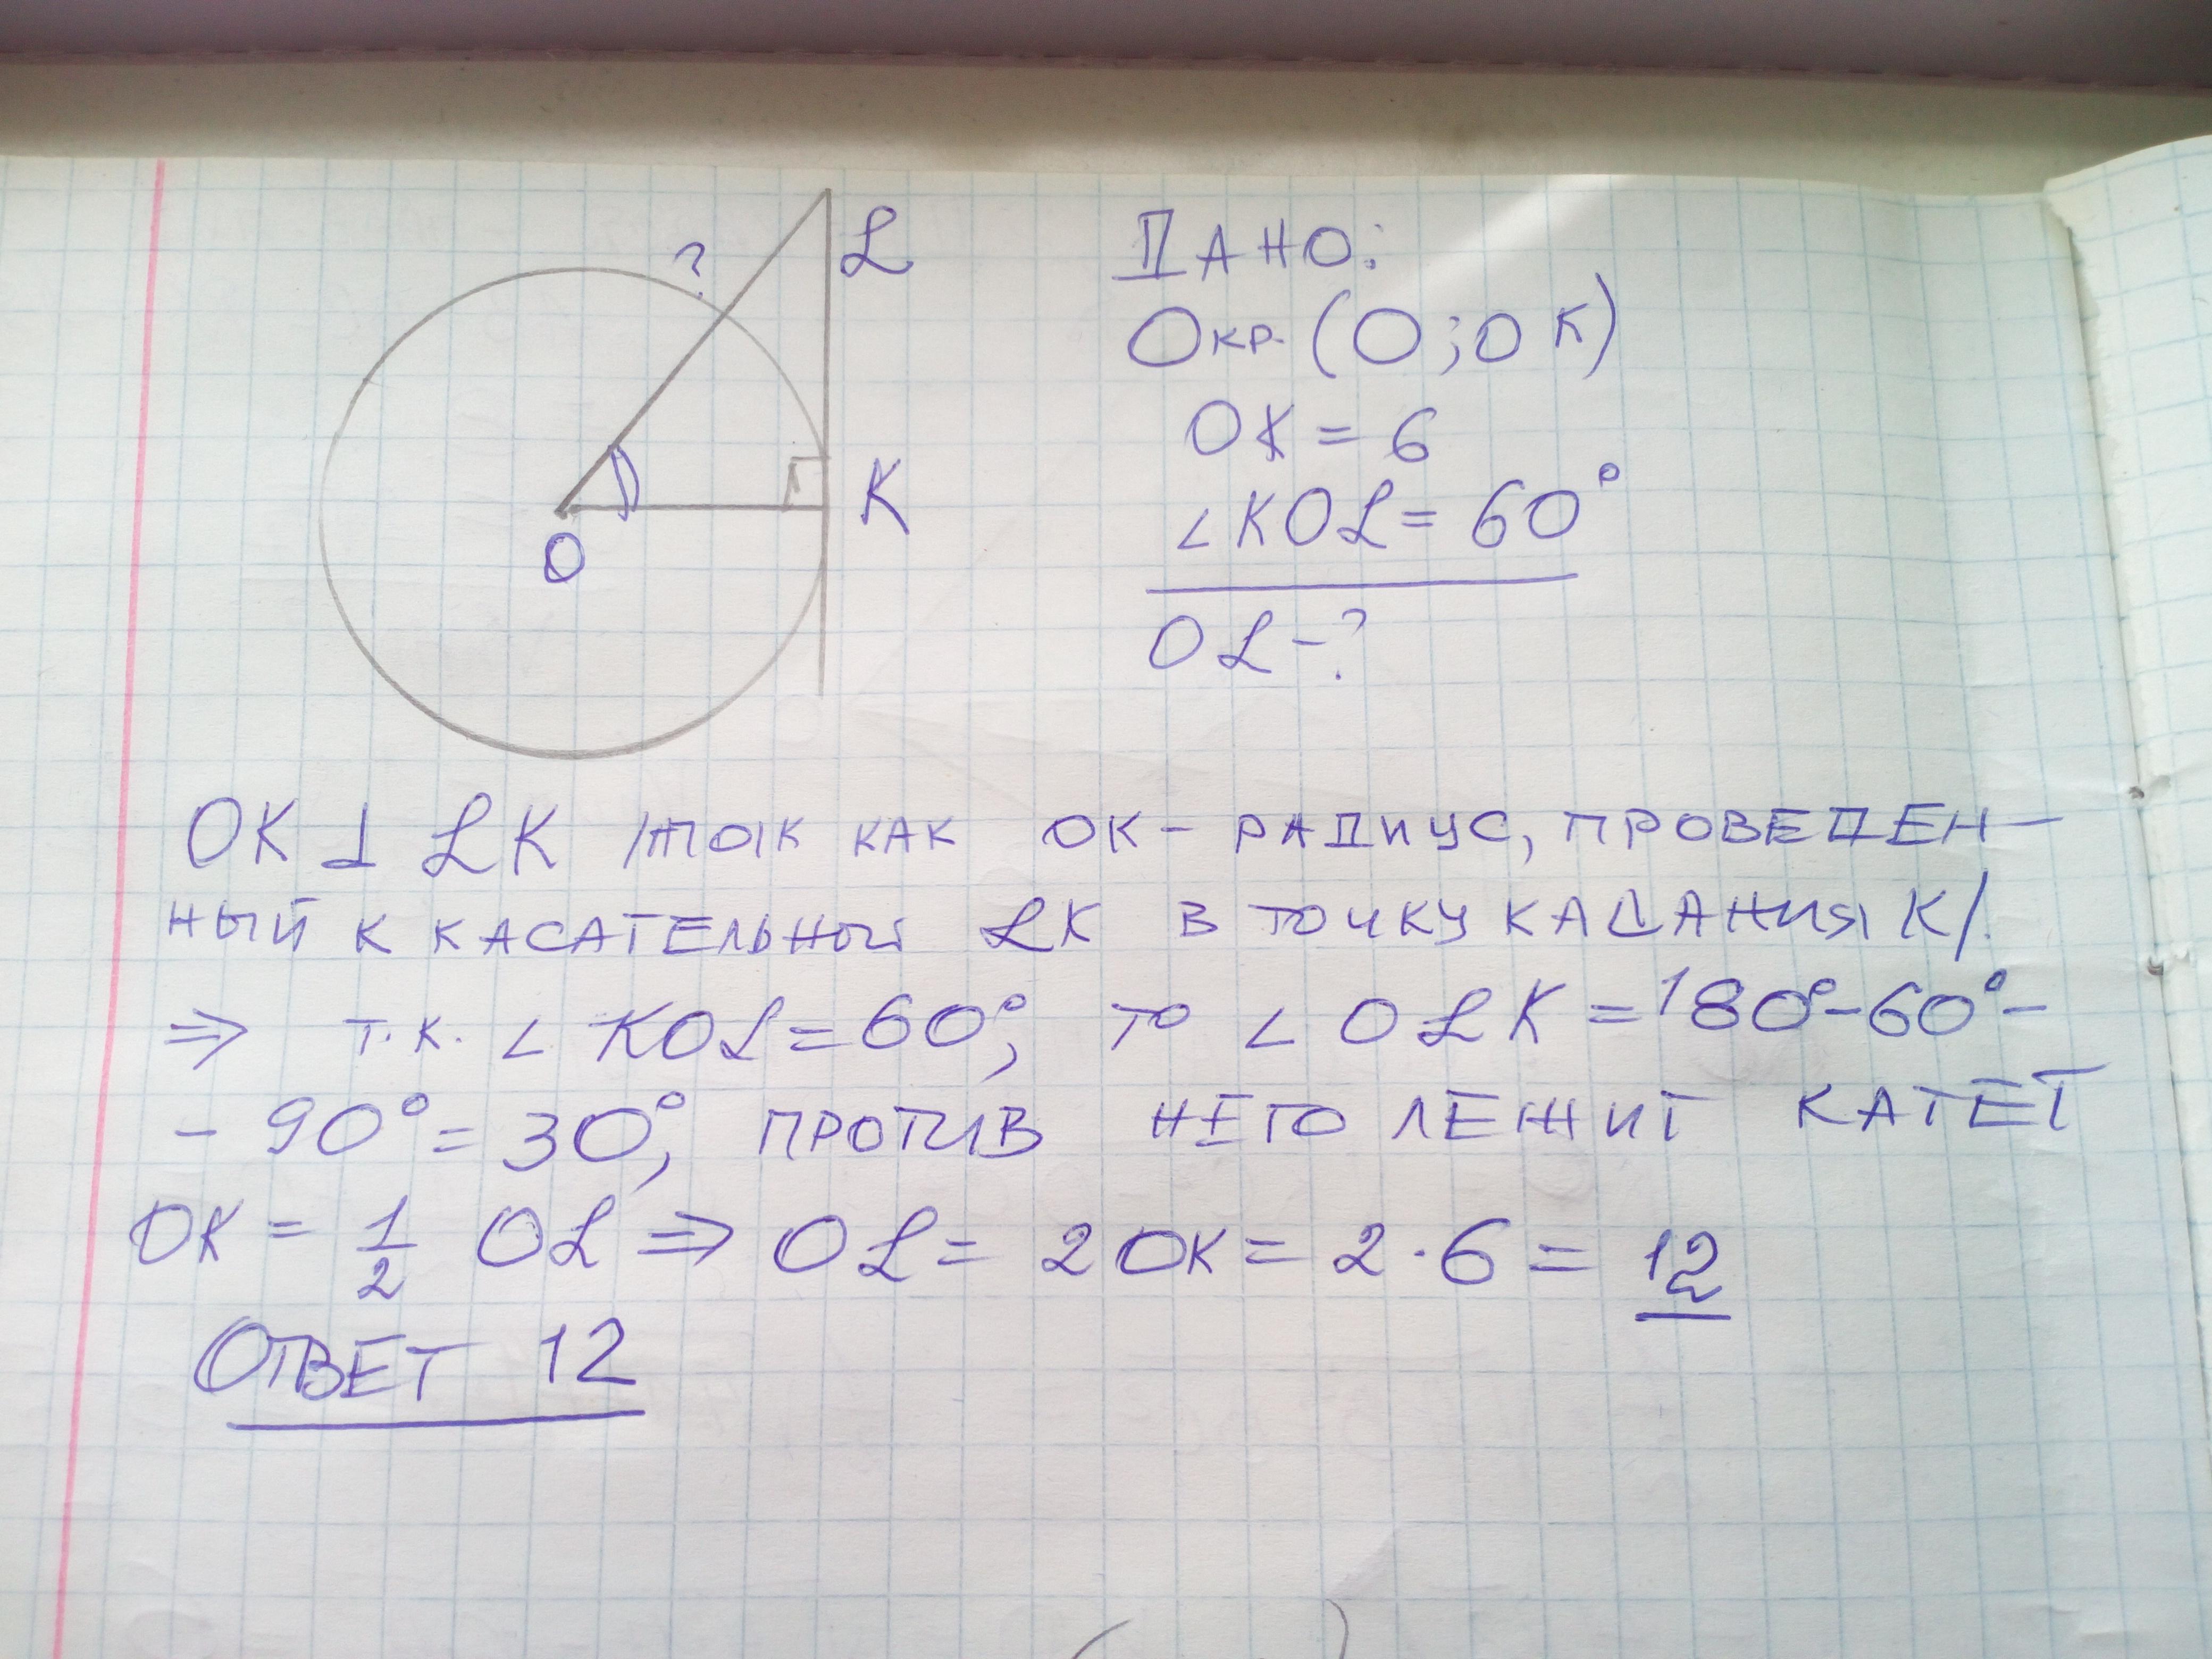 ?
L
K
O
ДАНО:
Окр. (O; OK)
OK = 6
∠KOL = 60°
OL - ?
OK ⊥ LK /так как OK - РАДИУС, ПРОВЕДЕН-
НЫЙ К КАСАТЕЛЬНОЙ LK В ТОЧКУ КАСАНИЯ K/.
⇒ т.к. ∠KOL = 60°, то ∠OLK = 180° - 60° -
- 90° = 30°, ПРОТИВ НЕГО ЛЕЖИТ КАТЕТ
OK = 1/2 OL ⇒ OL = 2OK = 2 · 6 = 12
ОТВЕТ 12